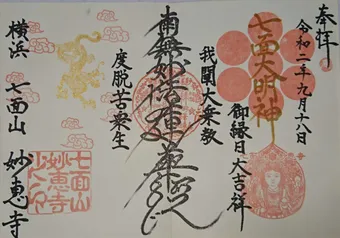 奉拝
令和二年九月十八日
七面大明神
御縁日大吉祥
我聞大乗教
南無妙法蓮華経
度脱苦衆生
横浜
七面山
妙恵寺
七面山
妙恵寺